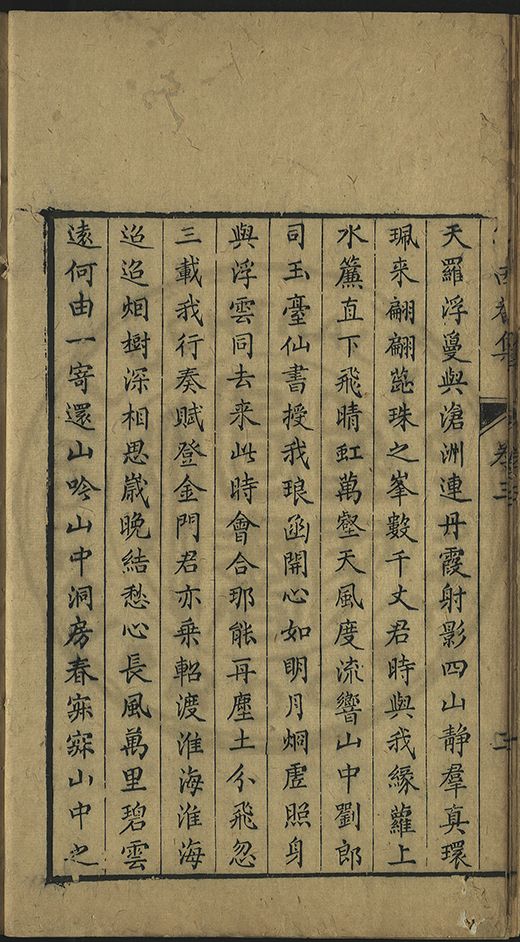 卷三
天羅浮夐與滄洲連丹霞射影四山靜羣真環
珮来翩翩蕊珠之峯數千丈君時與我緣蘿上
水簾直下飛晴虹萬壑天風度流響山中劉郎
司玉臺仙書授我琅函開心如明月烱虛照身
與浮雲同去来此時會合那能再塵土分飛忽
三載我行奏賦登金門君亦乘軺渡淮海淮海
迢迢烟樹深相思歲晚結愁心長風萬里碧雲
遠何由一寄還山吟山中洞房春寂寂山中之